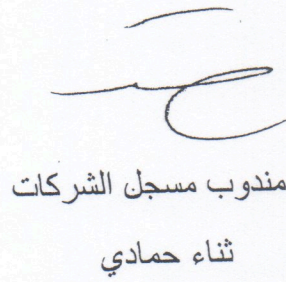 مندوب مسجل الشركات
ثناء حمادي